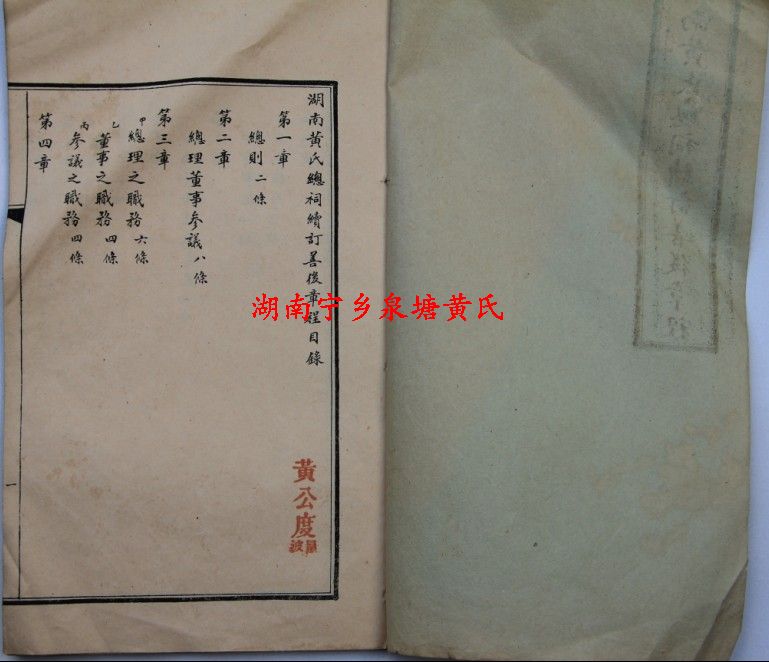 湖南黃氏總祠續訂善後章程目錄
第一章
總則二條
第二章
總理董事參議八條
第三章
甲總理之職務六條
乙董事之職務四條
丙參議之職務四條
第四章
一
黃公度
湖南宁乡泉塘黄氏